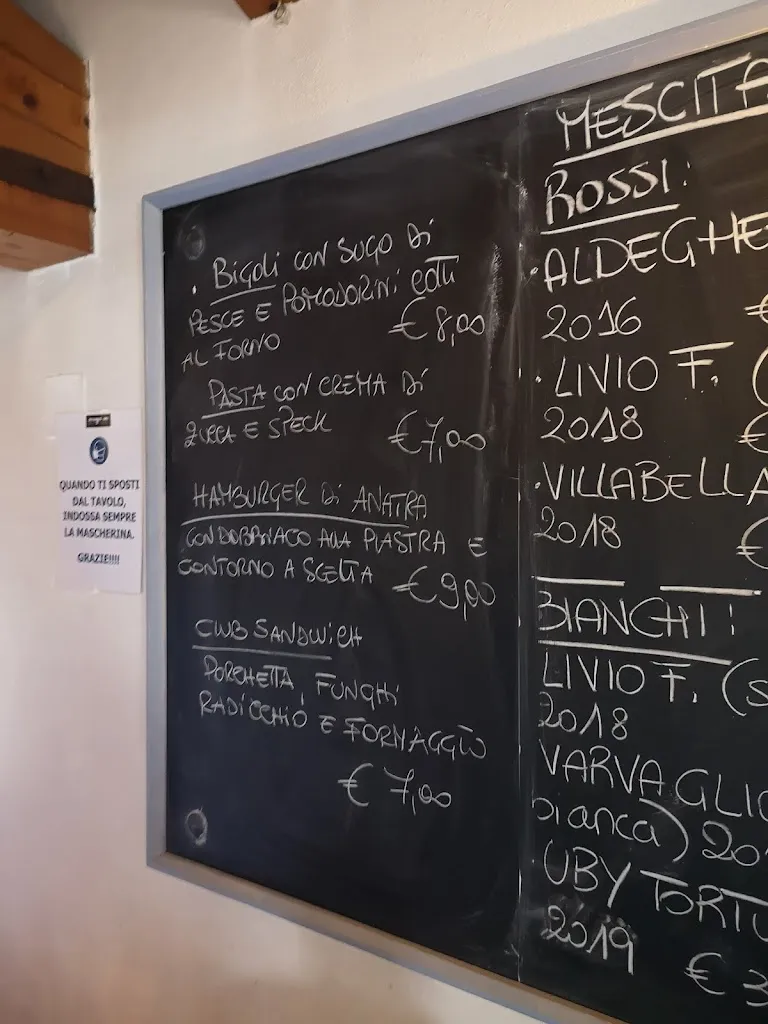 . BIGOLI CON SUGO DI
PESCE E POMODORINI COTTI
AL FORNO € 8,00
PASTA CON CREMA DI
ZUCCA E SPECK € 7,00
HAMBURGER DI ANATRA
CON ALLA PIASTRA E
CONTORNO A SCELTA € 9,00
CLUB SANDWICH
PORCHETTA, FUNGHI
RADICCHIO E FORMAGGIO
€ 7,00
MESCITA
ROSSI:
. ALDEGHE
2016 €
. LIVIO F. (
2018 €
. VILLABELLA
2018 €
BIANCHI:
LIVIO F. (S
2018
VARVAGLIO
bianca) 20
. UBY TORTU
2019
€ 3
QUANDO TI SPOSTI
DAL TAVOLO,
INDOSSA SEMPRE
LA MASCHERINA.
GRAZIE!!!!